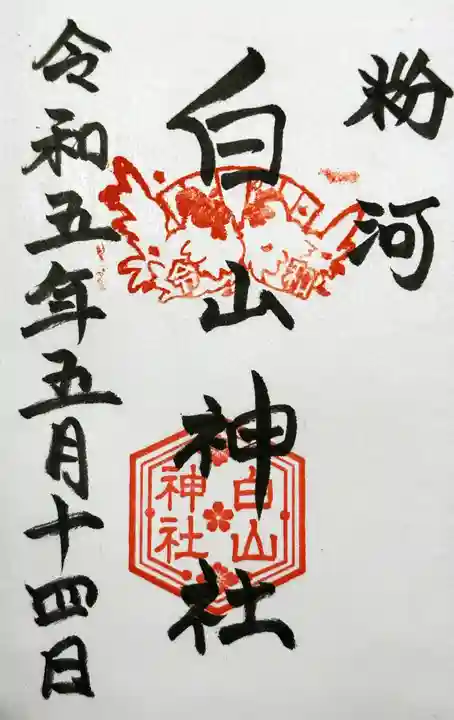 粉河
白山神社
令和五年五月十四日
令和
白山
神社